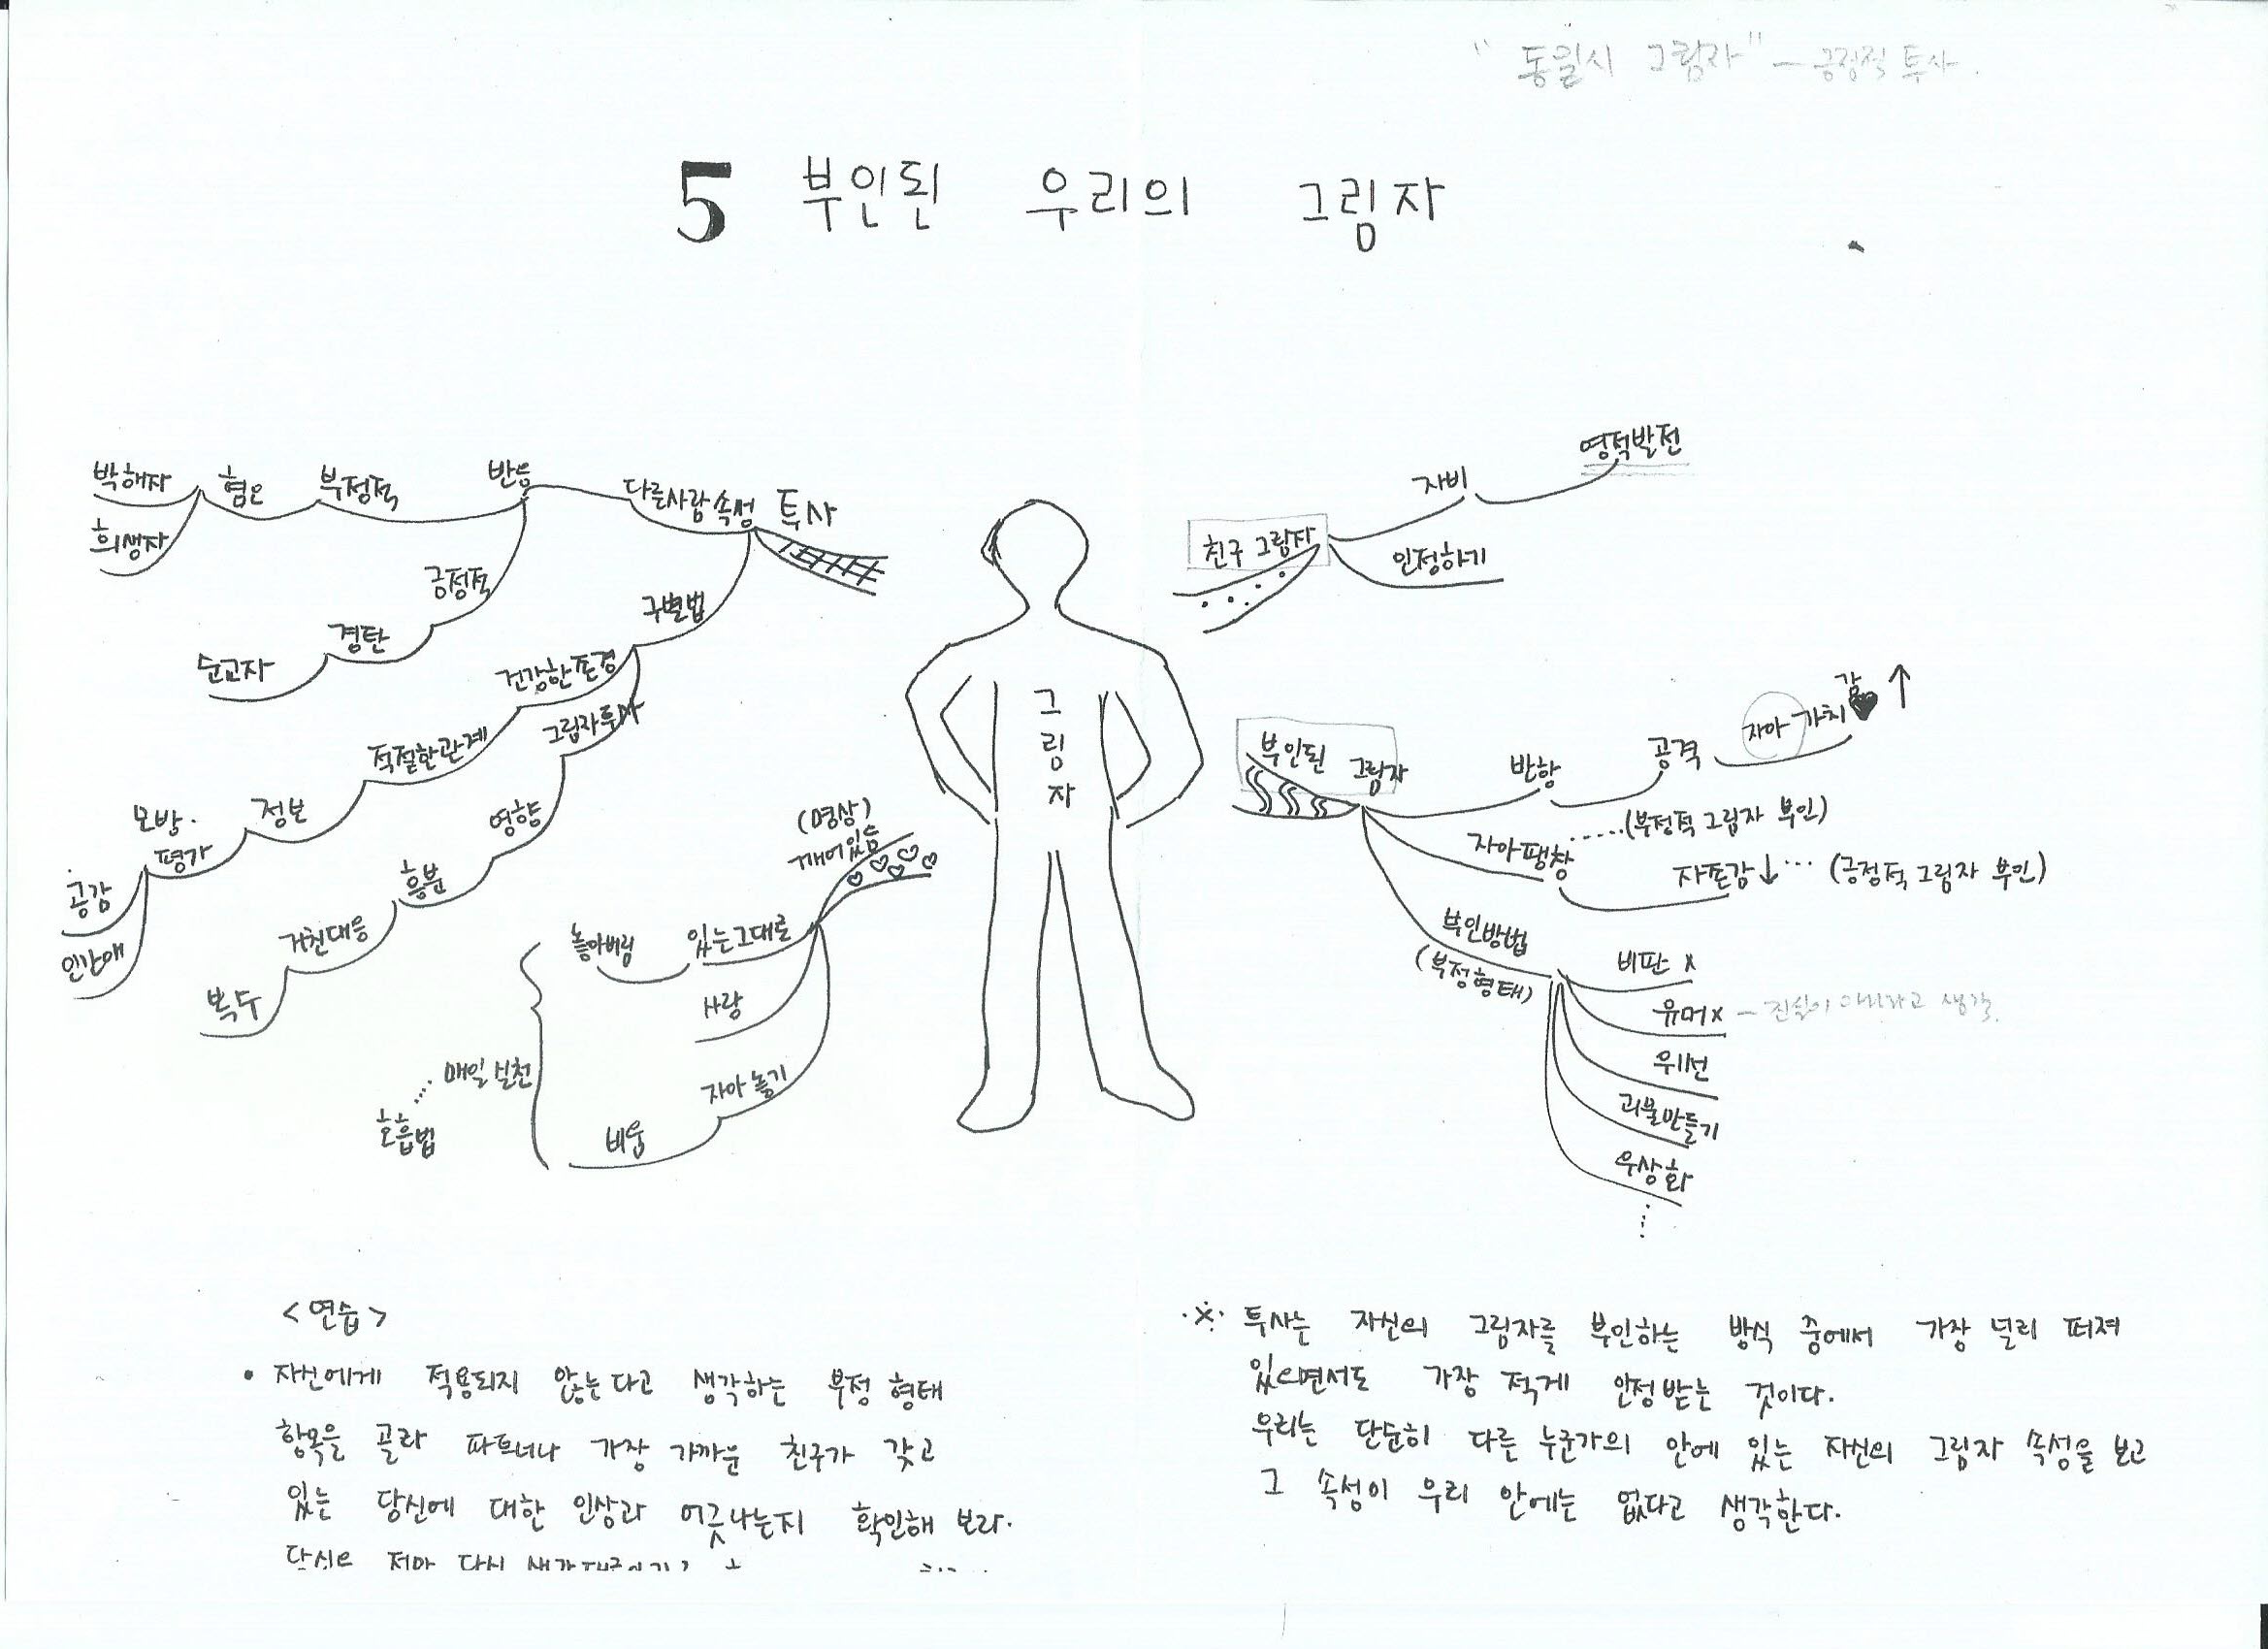 그림자" - 긍정적 투사.
5 부인된 우리의 그림자
박해자
희생자
혐오
부정적
반응
다른사람 속성
투사
긍정적
경탄
순교자
구별법
건강한 존경
적절한 관계
정보
모방.
평가
공감
인간애
그림자 투사
영향
흥분
거친대응
복수
(명상)
깨어있음
있는그대로
놓아버림
사랑
자아 놓기
비움
매일 실천
호흡법
그림자
친구 그림자
자비
영적발전
인정하기
부인된 그림자
반항
공격
자아 가치감 ♥ ↑
자아팽창 ······(부정적 그림자 부인)
자존감↓ ··· (긍정적 그림자 부인)
부인방법
(부정형태)
비판 x
유머 x - 진실이 아니라고 생각.
위선
괴물만들기
우상화
<연습>
• 자신에게 적용되지 않는다고 생각하는 부정 형태
항목을 골라 파트너나 가장 가까운 친구가 갖고
있는 당신에 대한 인상과 어긋나는지 확인해 보라.
※ 투사는 자신의 그림자를 부인하는 방식 중에서 가장 널리 퍼져
있으면서도 가장 적게 인정받는 것이다.
우리는 단순히 다른 누군가의 안에 있는 자신의 그림자 속성을 보고
그 속성이 우리 안에는 없다고 생각한다.